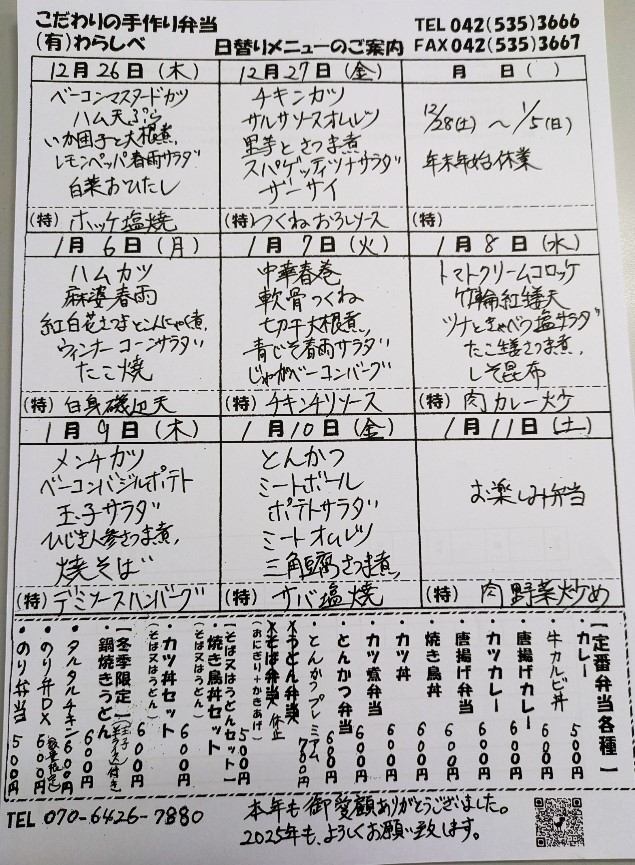 こだわりの手作り弁当
(有)わらしべ
日替りメニューのご案内
TEL 042(535)3666
FAX 042(535)3667
12月26日(木)
ベーコンマスタードカツ
ハム天ぷら
いか団子と大根煮
レモンペッパ春雨サラダ
白菜おひたし
(特) ホッケ塩焼
12月27日(金)
チキンカツ
サルサソースオムレツ
里芋とさつま煮
スパゲッティツナサラダ
ザーサイ
(特) つくねおろしソース
月 日( )
12/28(土) ～ 1/5(日)
年末年始休業
(特)
1月6日(月)
ハムカツ
麻婆春雨
紅白花さつまとこんにゃく煮
ウィンナーコーンサラダ
たこ焼
(特) 白身磯辺天
1月7日(火)
中華春巻
軟骨つくね
切干大根煮
青じそ春雨サラダ
じゃがベーコンバーグ
(特) チキンチリソース
1月8日(水)
トマトクリームコロッケ
竹輪紅生姜天
ツナときゃべつ塩サラダ
たこ生姜さつま煮
しそ昆布
(特) 肉カレー炒け
1月9日(木)
メンチカツ
ベーコンバジルポテト
玉子サラダ
ひじき人参さつま煮
焼そば
(特) デミソースハンバーグ
1月10日(金)
とんかつ
ミートボール
ポテトサラダ
ミートオムレツ
三角豆腐さつま煮
(特) サバ塩焼
1月11日(土)
お楽しみ弁当
(特) 肉野菜炒め
【定番弁当各種】
・カレー 500円
・牛カルビ丼 600円
・唐揚げカレー 600円
・カツカレー 600円
・唐揚げ弁当 600円
・焼き鳥丼 600円
・カツ丼 600円
・カツ煮弁当 600円
・とんかつ弁当 600円
・とんかつプレミアム 700円
・うどん弁当
・そば弁当 休止
(おにぎり+かきあげ) 500円
【そば又はうどんセット】
・焼き鳥丼セット 600円
(そば又はうどん)
・カツ丼セット 600円
(そば又はうどん)
【冬季限定】
鍋焼きうどん 600円
・タルタルチキン 600円
・のり弁DX 600円
・のり弁当 500円
TEL 070-6426-7880
本年も御愛顧ありがとうございました。
2025年も、よろしくお願い致します。